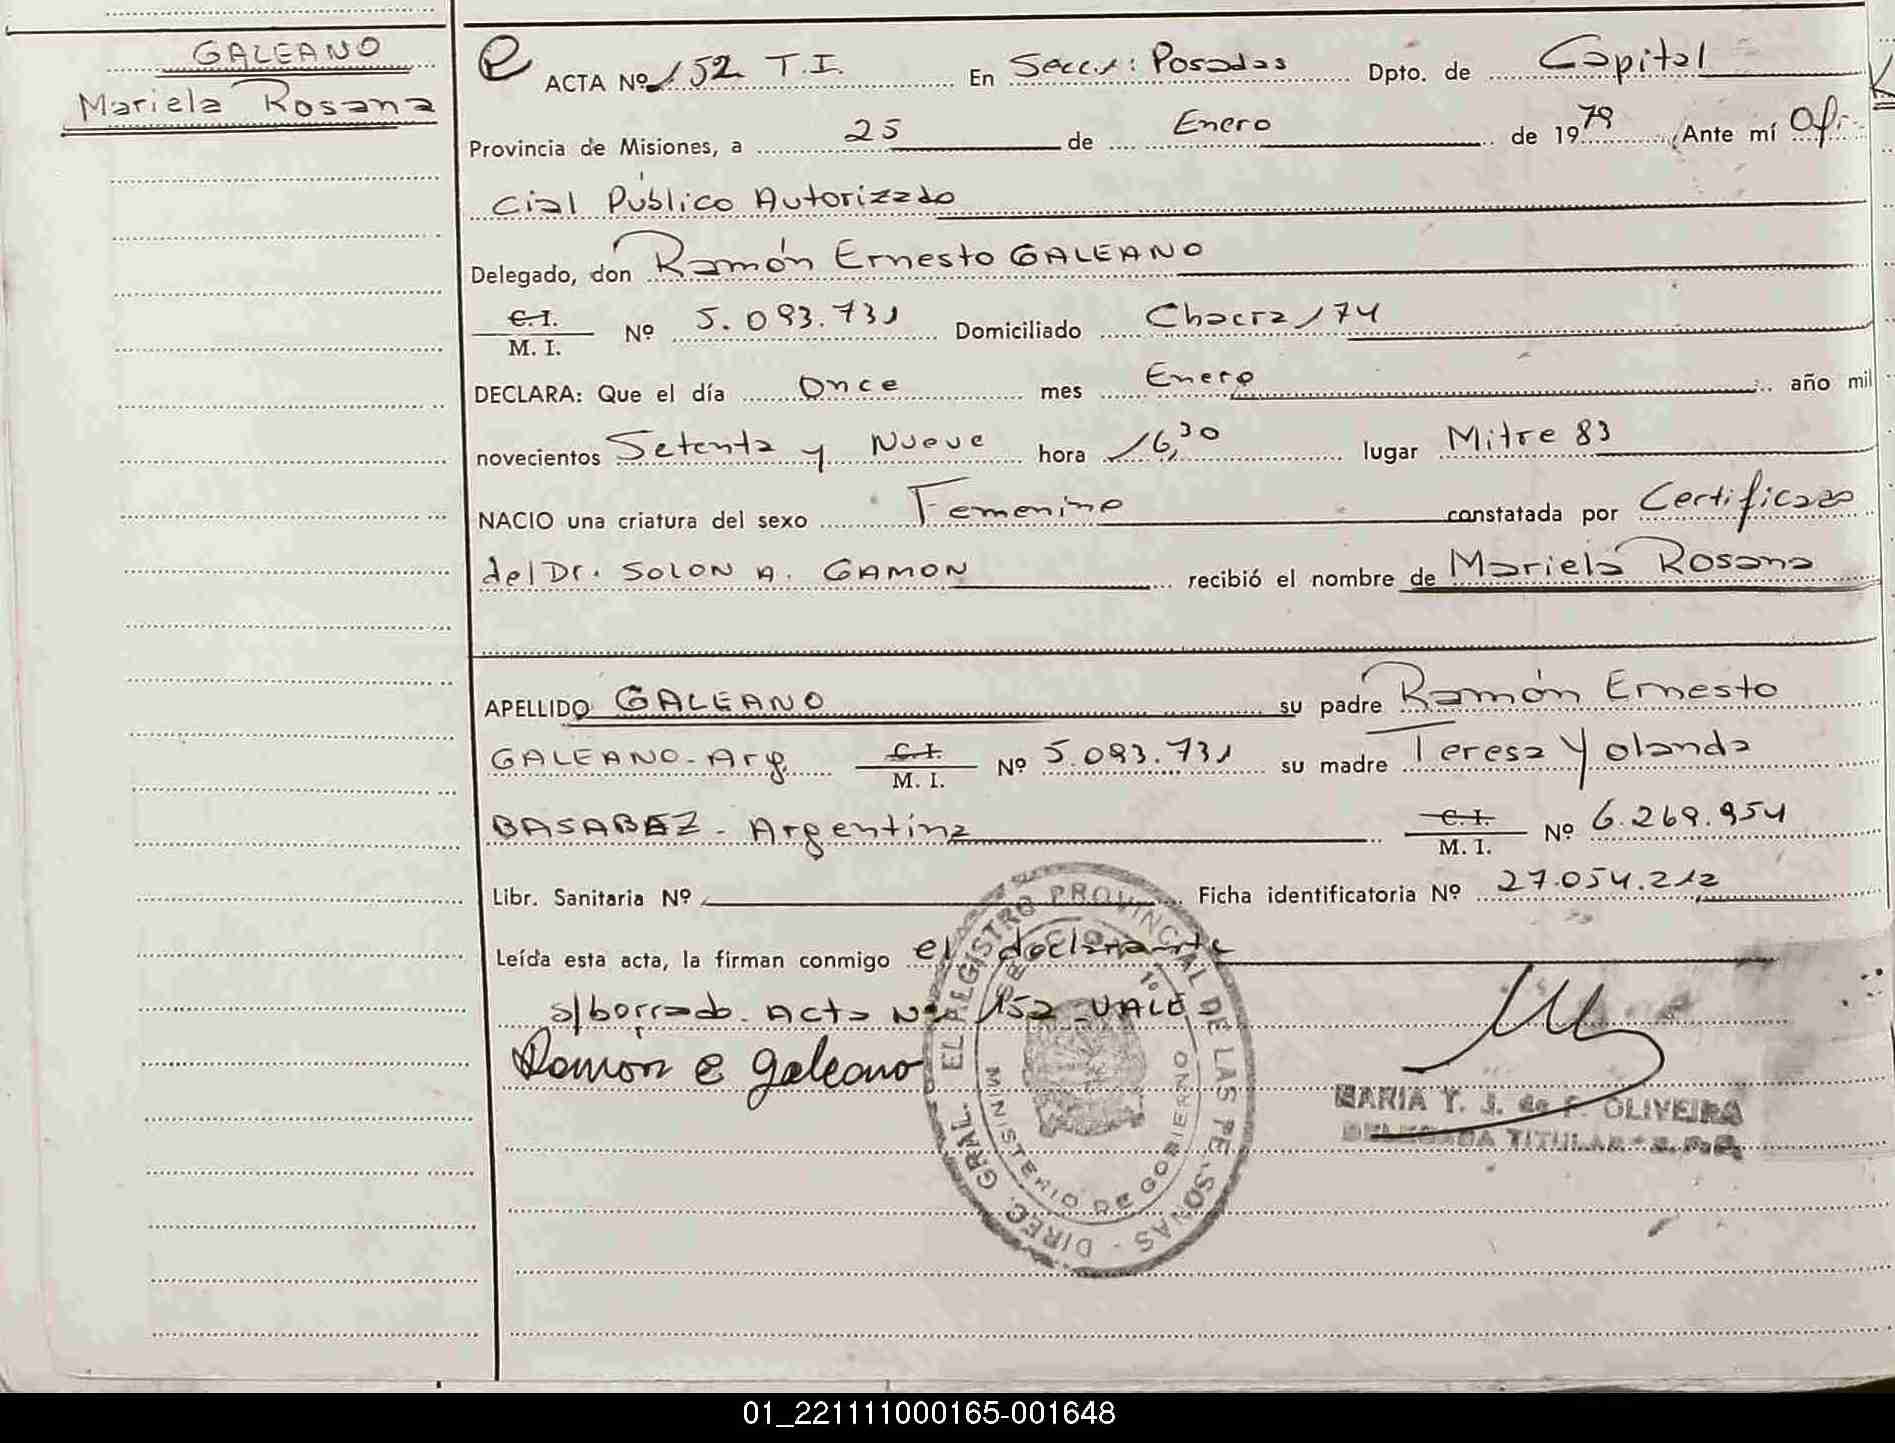 GALEANO
Mariela Rosana
ACTA Nº 152 T.I. En Secc.1: Posadas Dpto. de Capital
Provincia de Misiones, a 25 de Enero de 1979 Ante mí Ofi-
cial Público Autorizado
Delegado, don Ramón Ernesto GALEANO
C.I. M.I. Nº 5.093.731 Domiciliado Chacra 174
DECLARA: Que el día Once mes Enero año mil
novecientos Setenta y Nueve hora 16,30 lugar Mitre 83
NACIO una criatura del sexo Femenino constatada por Certificado
del Dr. SOLON A. GAMON recibió el nombre de Mariela Rosana
APELLIDO GALEANO su padre Ramón Ernesto
GALEANO-Arg. C.I. M.I. Nº 5.093.731 su madre Teresa Yolanda
BASABEZ - Argentina C.I. M.I. Nº 6.269.954
Libr. Sanitaria Nº Ficha identificatoria Nº 27.054.212
Leída esta acta, la firman conmigo el declarante
s/borrado. Acta Nº 152 VALE
Ramón E Galeano
MARIA T. J. de F. OLIVEIRA
DELEGADA TITULAR
DIREC. GRAL. EL REGISTRO PROVINCIAL DE LAS PERSONAS
SECCION 1º
MINISTERIO DE GOBIERNO
01_221111000165-001648